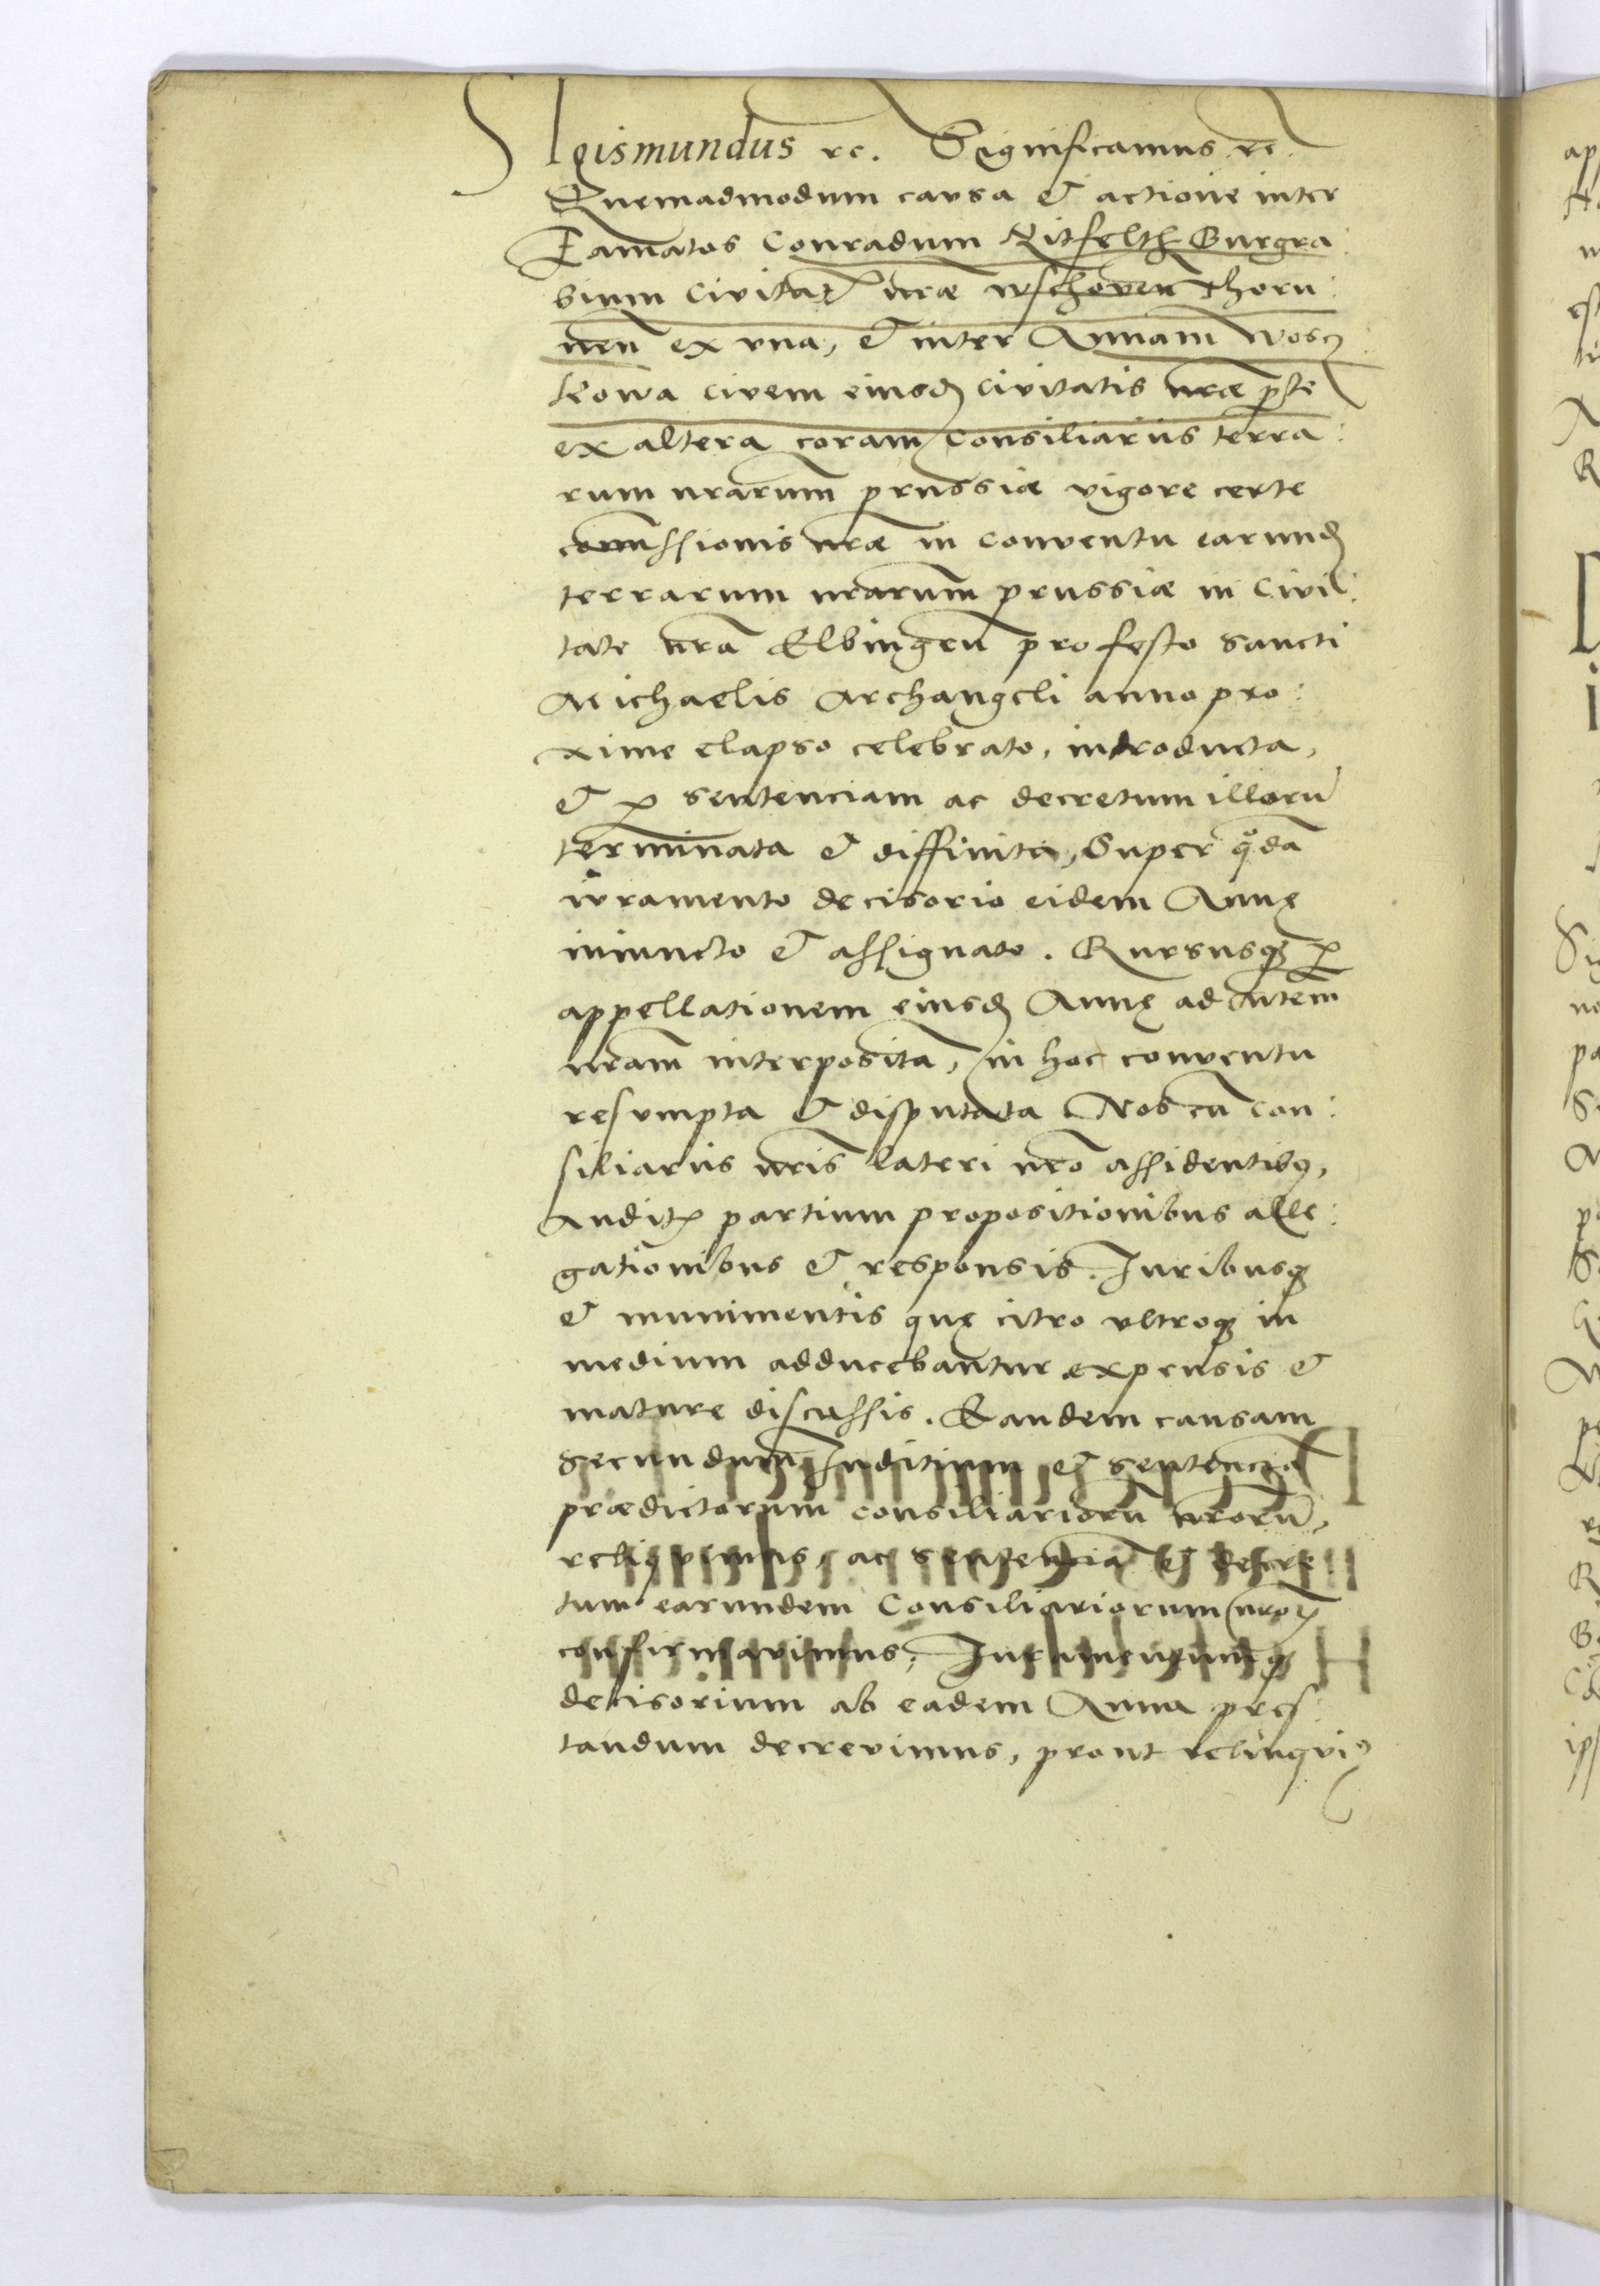 Sigismundus rc. Significamus rc.
Quemadmodum causa & actione inter
Famatos Conradum Ritfelth Burgra:
bium Civitat nrae Thoru:
nen ex vna, & inter Annam Wosy
leowa civem eiusd Civitatis nrae pte
ex altera coram Consiliariis terra:
rum nrarum prussiae vigore certe
comissionis nrae in conventu earund
terrarum nrarum prussiae in Civi:
tate nra Elbingen pro festo Sancti
Michaelis Archangeli anno pro:
xime elapso celebrato, introducta,
& p sentenciam ac decretum illoru
terminata & diffinita, Super qda
iuramento decisorio eidem Annę
iniuncto & assignato. Rursusq p
appellationem eiusd Annę ad
nram interposita, in hoc conventu
resumpta & disputata Nos cu con:
siliariis nris lateri nro assidentibq,
Audit partium propositionibus alle:
gationibus & responsis. Iuribusq
& munimentis quę citro vltroq in
medium adducebantur expensis &
mature discussis. Eandem causam
secundum Iuditium & sentencia
praedictorum consiliarioru nroru,
reliq vimus, ac sentencia & decre
tum earundem Consiliariorum nro
confirmavimus, Iuramentumq
decisorium ab eadem Anna pres:
tandum decrevimus, prout relinqvi